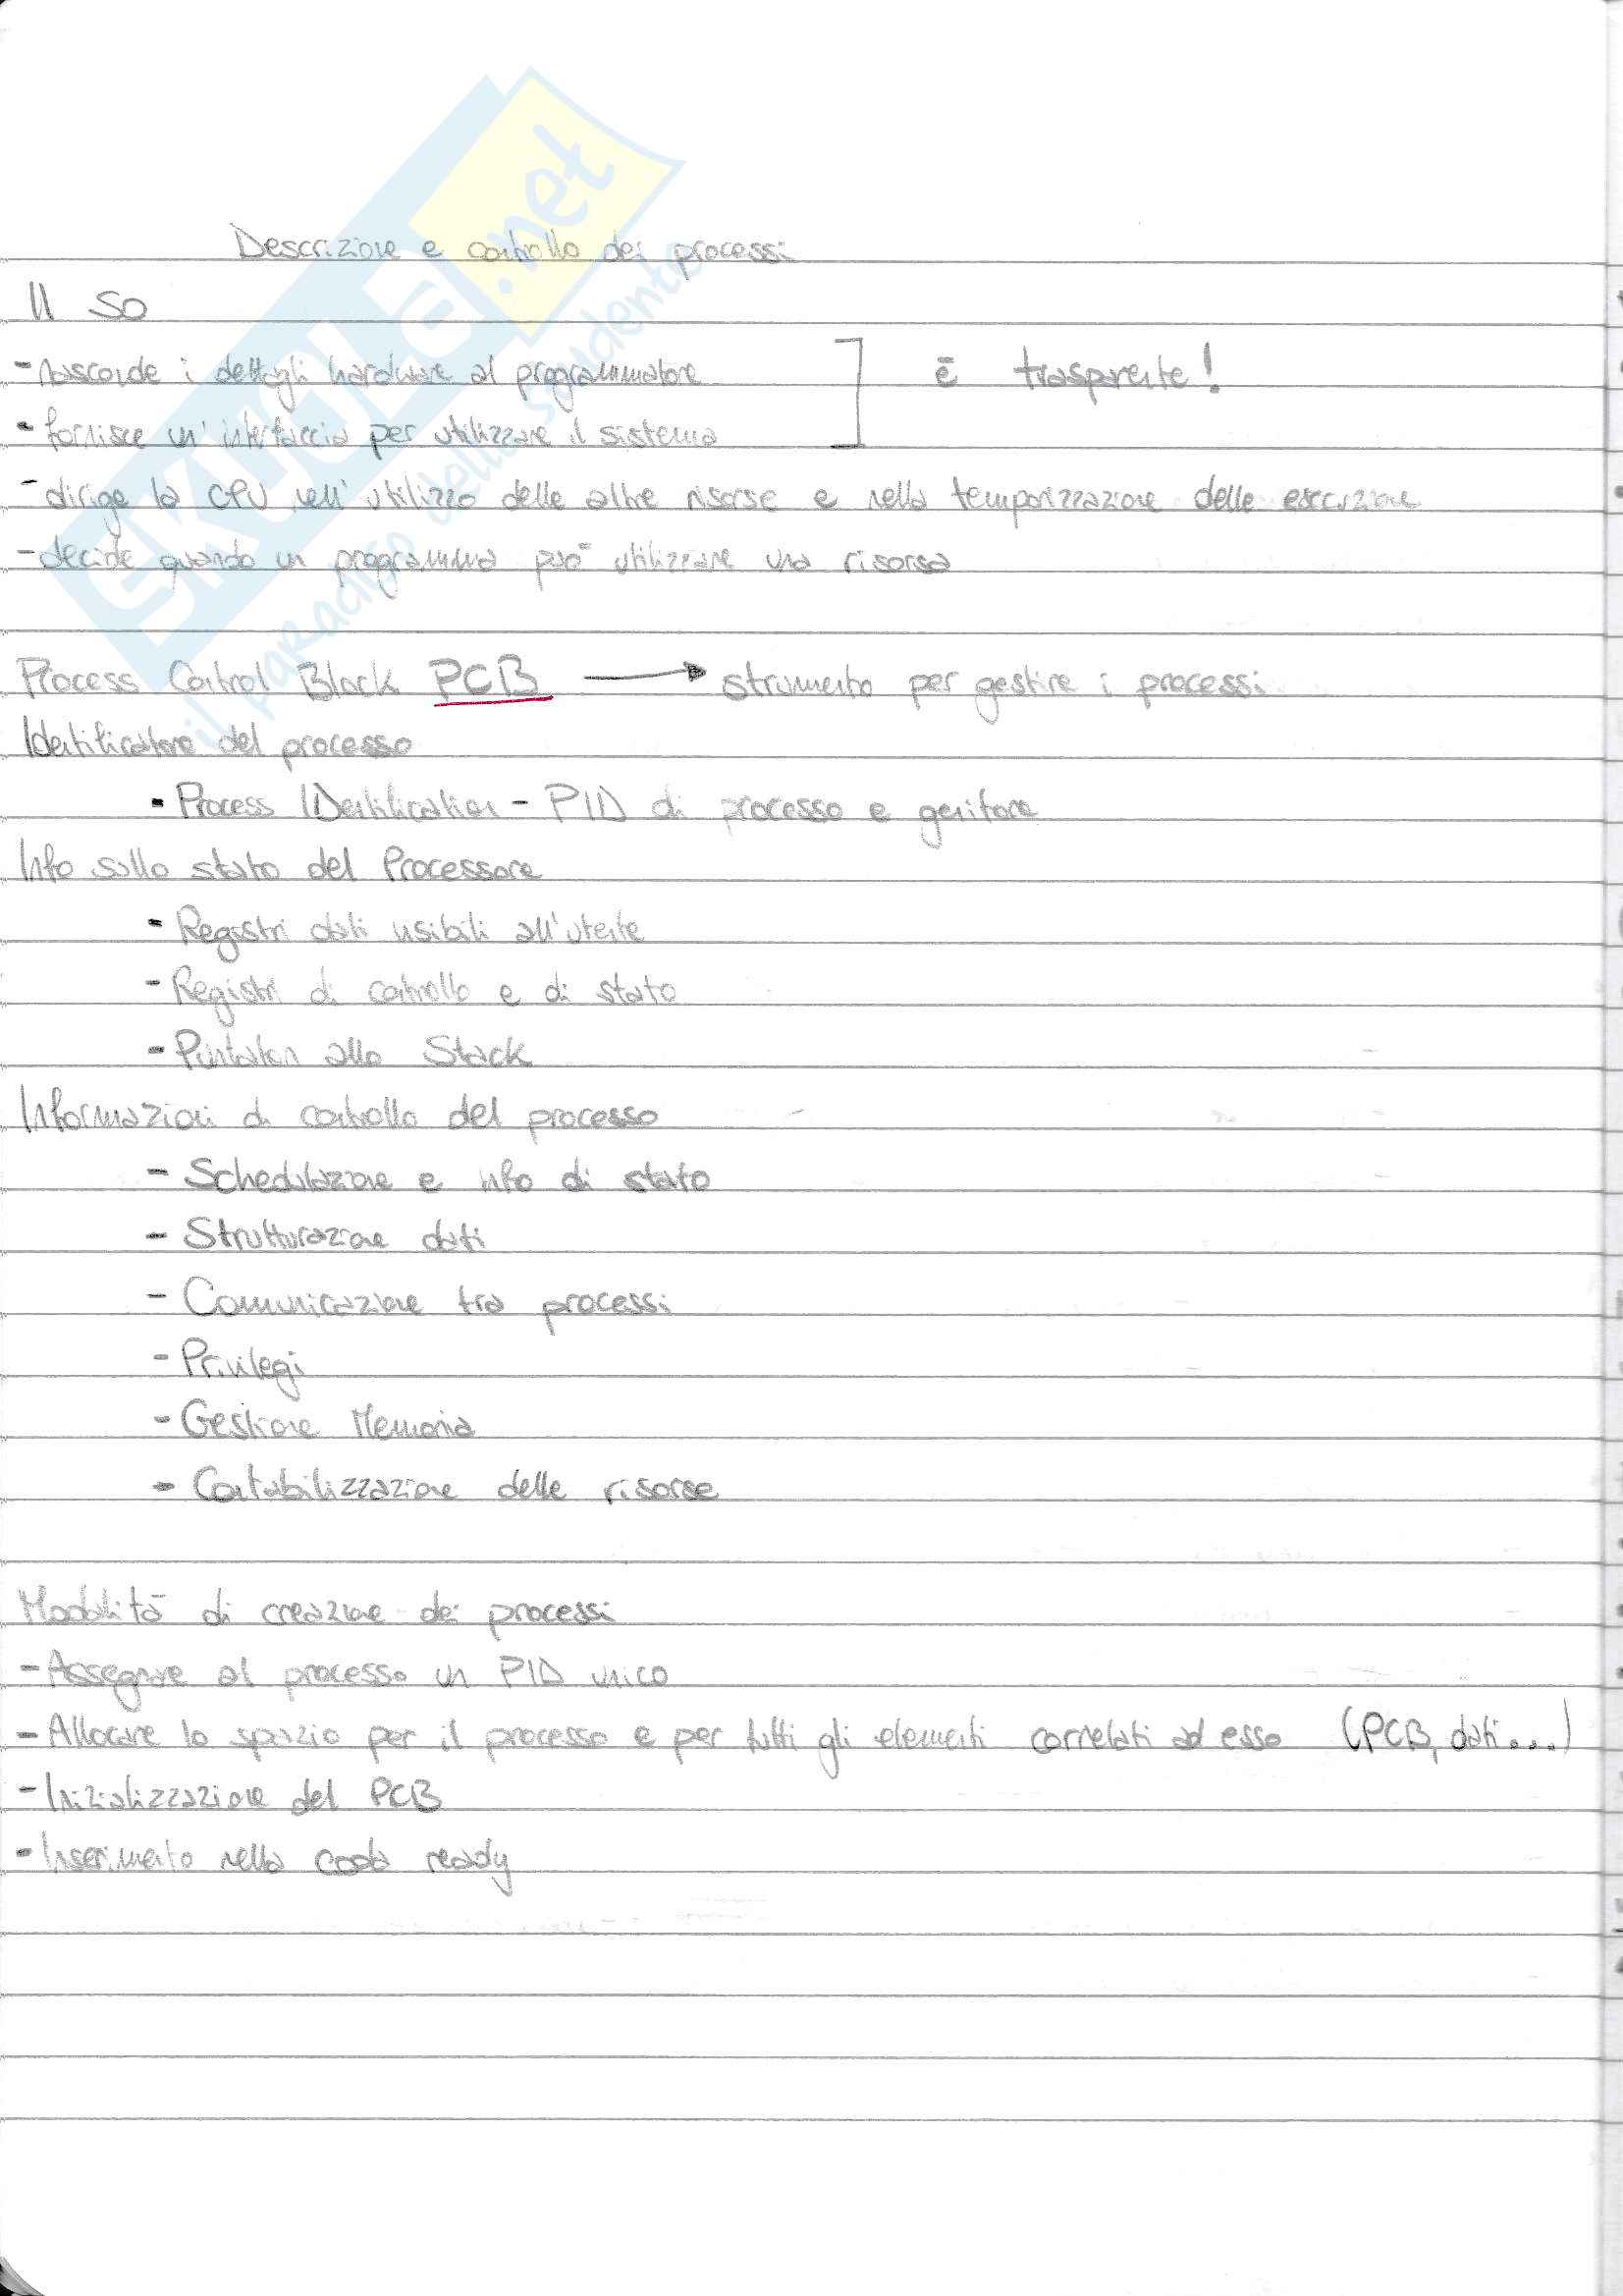 SKUOLA.net
il paradiso dello studente
Descrizione e controllo dei processi
Il SO
- nasconde i dettagli hardware al programmatore
- fornisce un'interfaccia per utilizzare il sistema
è trasparente!
- dirige la CPU nell'utilizzo delle altre risorse e nella temporizzazione delle esecuzione
- decide quando un programma può utilizzare una risorsa
Process Control Block PCB → strumento per gestire i processi
Identificatore del processo
- Process IDentification - PID di processo e genitore
Info sullo stato del Processore
- Registri dati visibili all'utente
- Registri di controllo e di stato
- Puntatori allo Stack
Informazioni di controllo del processo
- Schedulazione e info di stato
- Strutturazione dati
- Comunicazione tra processi
- Privilegi
- Gestione Memoria
- Contabilizzazione delle risorse
Modalità di creazione dei processi
- Assegnare al processo un PID unico
- Allocare lo spazio per il processo e per tutti gli elementi correlati ad esso (PCB, dati...)
- Inizializzazione del PCB
- Inserimento nella coda ready